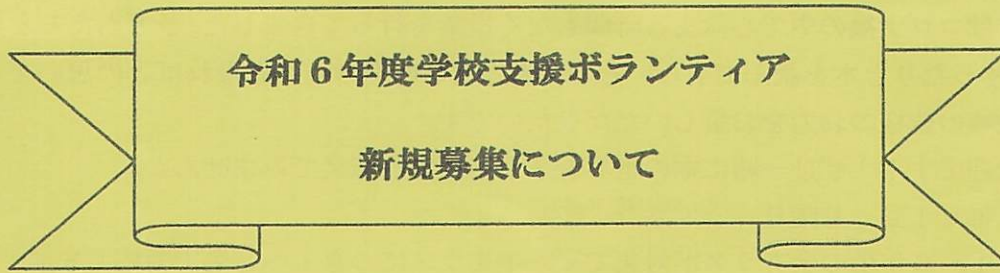 令和6年度学校支援ボランティア
新規募集について